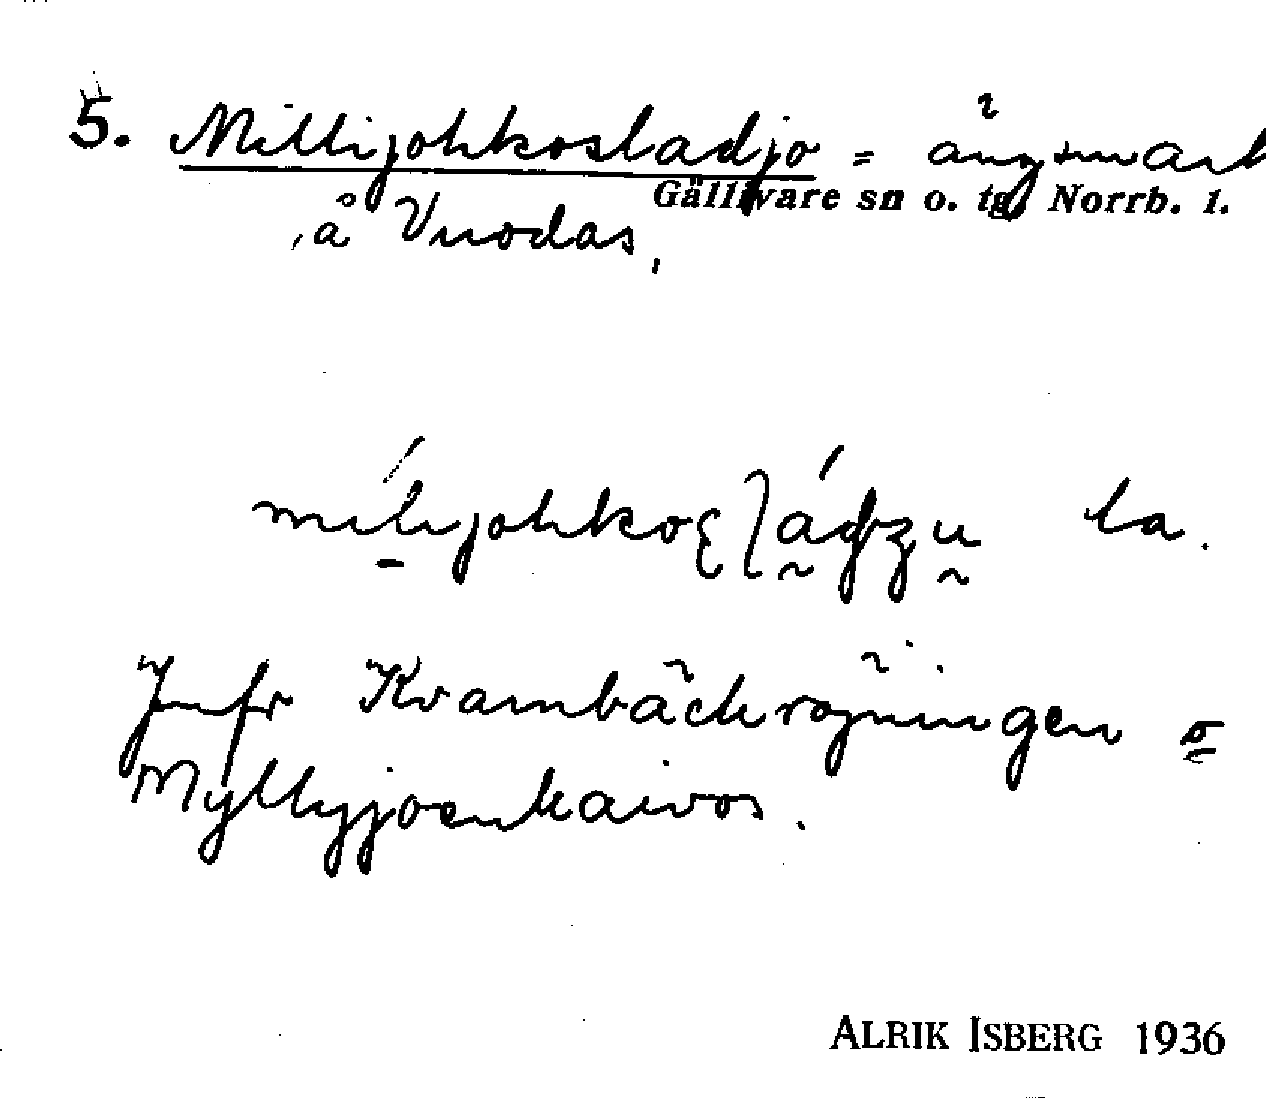 5. Millijohkosladjo = ängsmark
Gällivare sn o. tg. Norrb. l.
å Vuodas.
la.
Jmfr Kvarnbäckröjningen o
Myllyjoenkaivos.
ALRIK ISBERG 1936